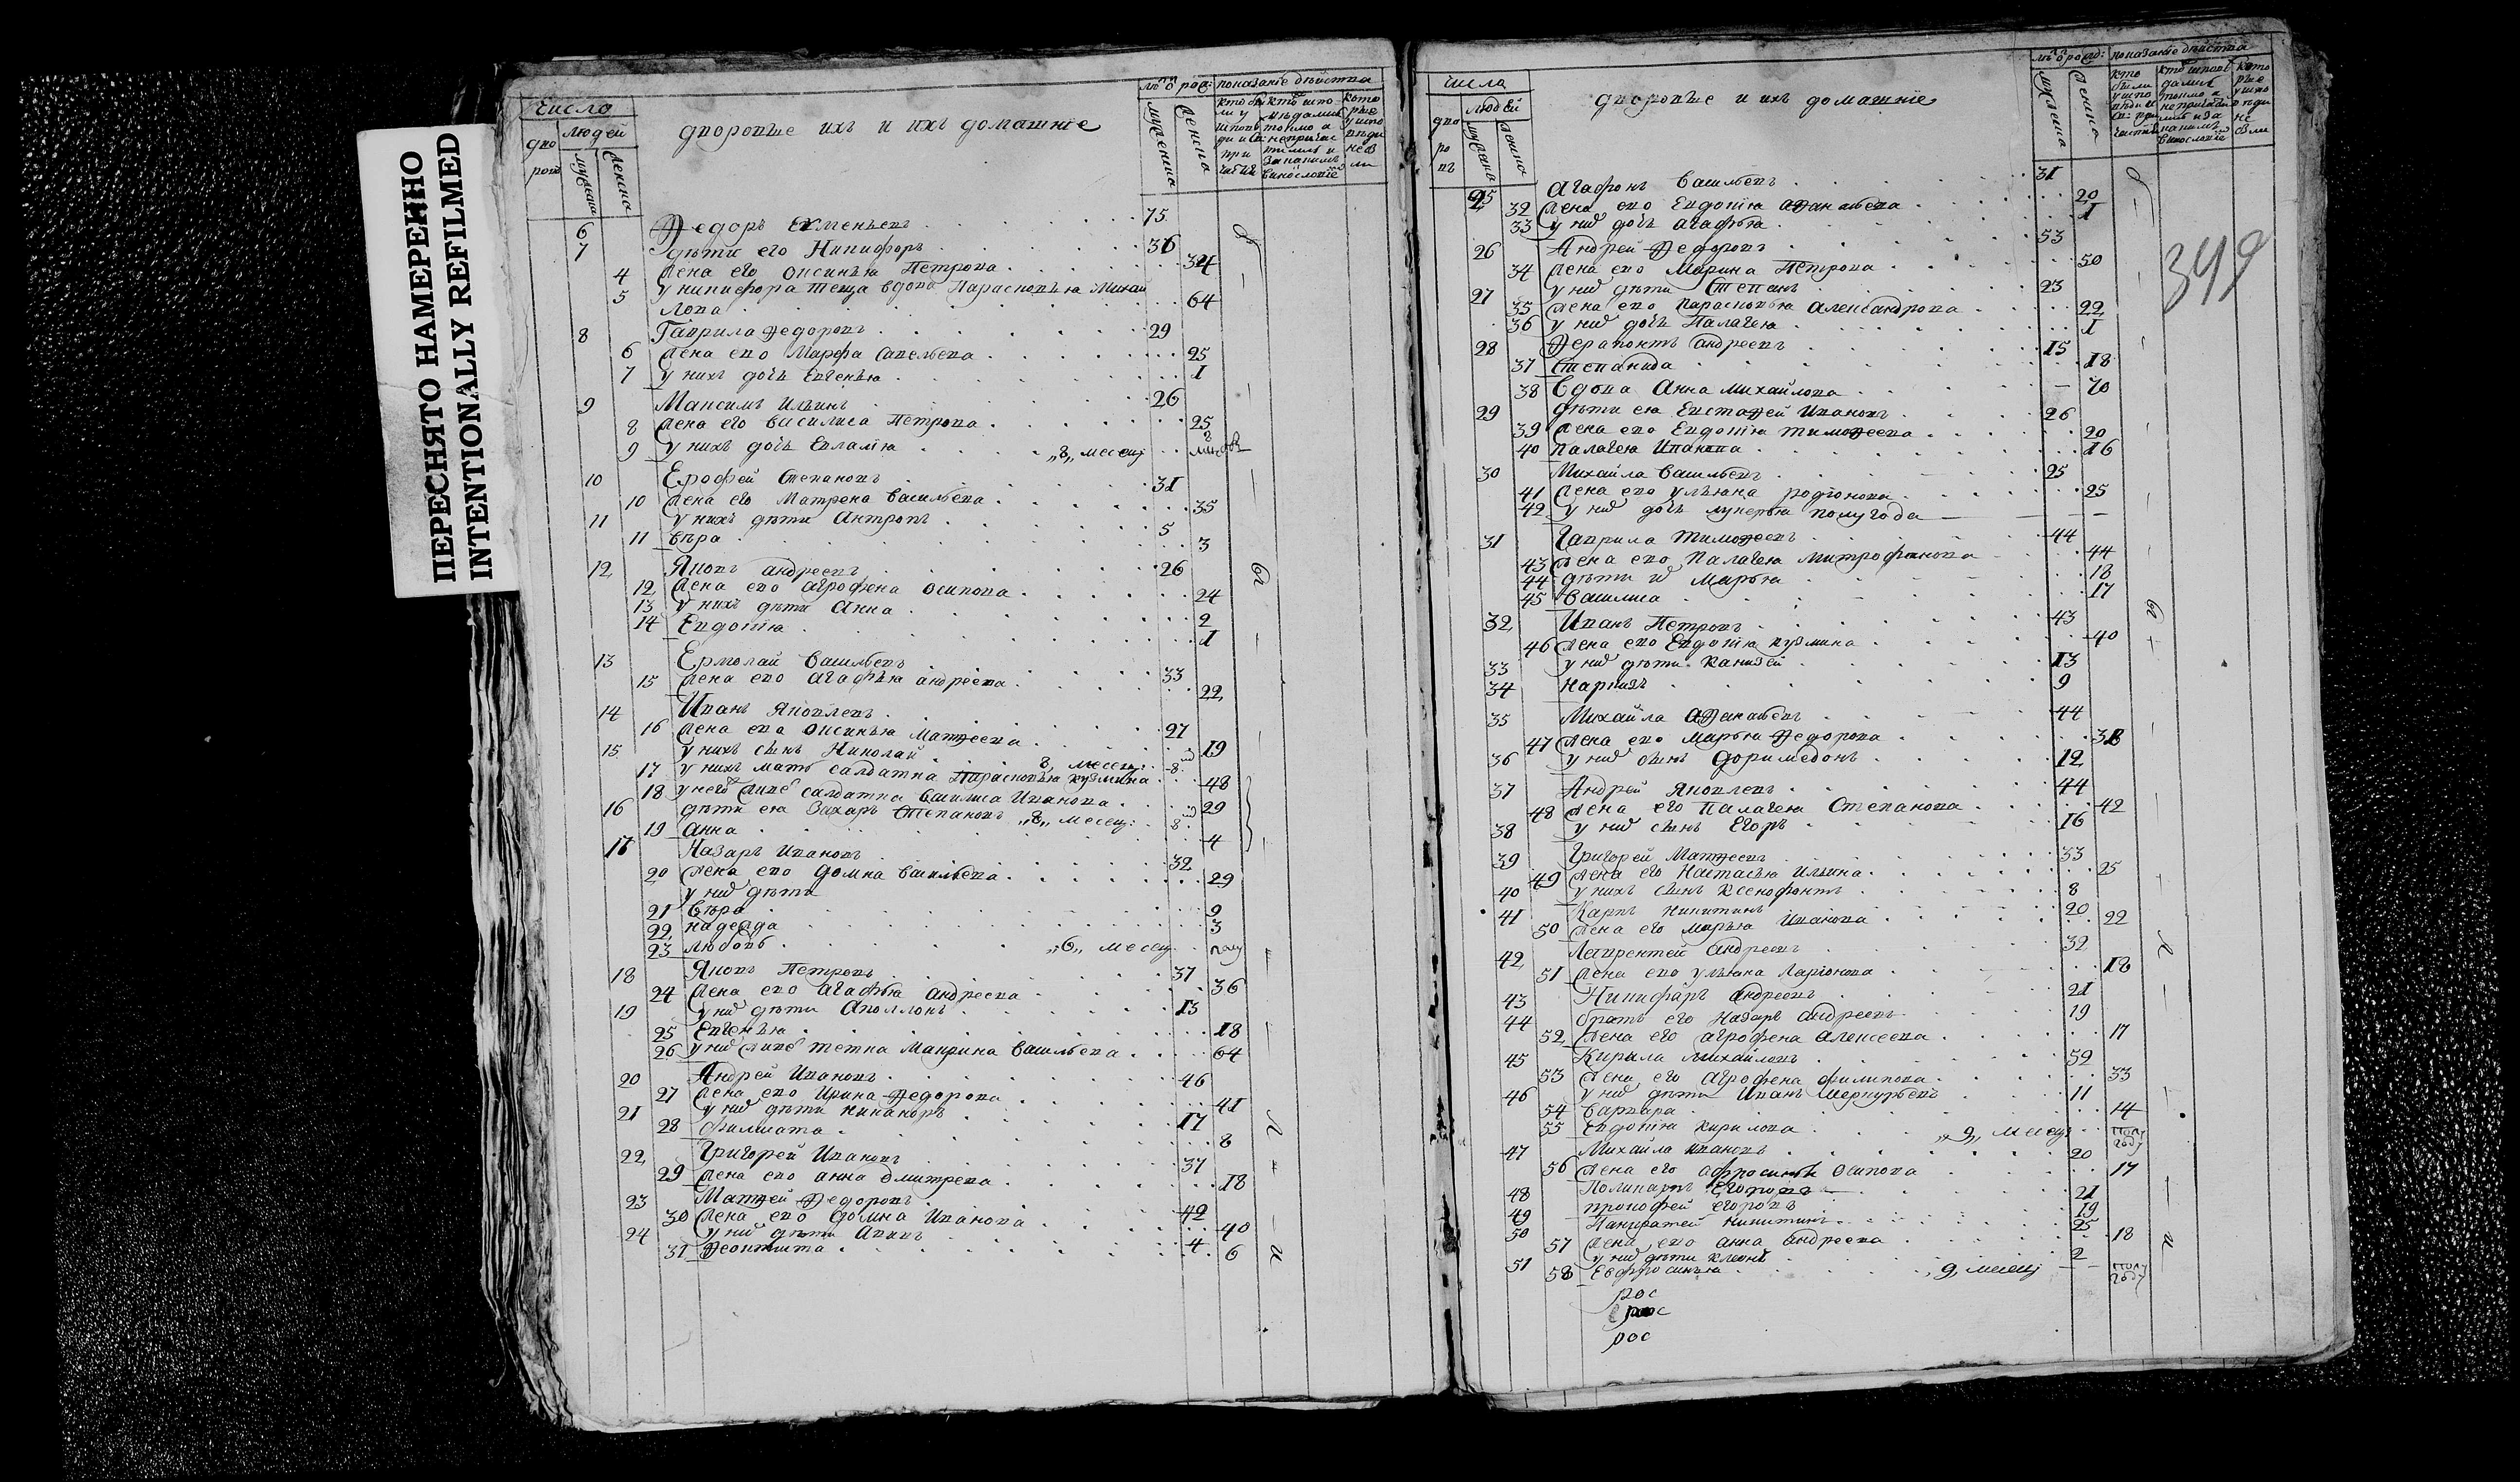 ПЕРЕСНЯТО НАМЕРЕННО
INTENTIONALLY REFILMED
число
дворовые их и ихъ домашнїе
людей
дво
ровъ
мужеска
женска
лѣтъ ѿ рож: показанїе дѣйства
мужеска
женска
6 Ѳедоръ Ек 75
7 дѣти его Никифоръ 36
4 жена его Оксинья Петрова 34
5 у Никифора теща вдова Парасковья Михаи
лова 64
8 Гаврила Ѳедоровъ 29
6 жена ево Марфа Савельева 25
7 у нихъ дочь Евгенья 1
9 Максимъ Ильинъ 26
8 жена его Василиса Петрова 25
9 у нихъ дочь Евлалїя „8„ месецъ
10 Ерофей Степановъ 31
10 жена его Матрена Васильева 35
11 у нихъ дѣти Антропъ 5
11 Вѣра 3
12 Яковъ Андреевъ 26
12 жена ево Агрофена Осипова 24
13 у нихъ дѣти Анна 2
14 Евдотїя 1
13 Ермолай Васильевъ 33
15 жена ево Агафья Андреева 22
14 Иванъ Яковлевъ 27
16 жена ево Оксинья Матѳеева 19
15 у нихъ сынъ Николай 8, месецъ 8
17 у нихъ мать салдатка Парасковья Кузмина 48
18 у него живе салдатка Василиса Иванова 29
16 дѣти ея Захаръ Степановъ „8„ месецъ 8
19 Анна 4
17 Назаръ Ивановъ 32
20 жена ево Домна Васильева 29
у них дѣти
21 Вѣра 9
22 Надежда 3
23 Любовь „6„ месец полу
18 Яковъ Петровъ 37
24 жена ево Агафья Андреева 36
19 у них дѣти Аполлонъ 13
25 Евгенья 18
26 у них живе тетка Маврина Васильева 64
20 Андрей Ивановъ 46
27 жена ево Ирина Ѳедорова 41
21 у них дѣти Никаноръ 17
28 Филицата 8
22 Григорей Ивановъ 37
29 жена ево Анна Дмитрева 18
23 Матѳей Ѳедоровъ 42
30 жена ево Домна Иванова 40
24 у них дѣти 4
31 Ѳеоктиста 6
числа
людей
дво
ро
въ
мужеска
женска
дворовые и ихъ домашнїе
лѣтъ ѿ рожд: показанїе дѣиства
мужеска
женска
349
25 Агафонъ Васильевъ 31
32 жена ево Евдотїя Аѳанасьева 20
33 у них дочь Агафья 1
26 Андрей Ѳедоровъ 53
34 жена ево Марина Петрова 50
27 у них дѣти Степанъ 23
35 жена ево Парасковья Александрова 22
36 у них дочь Палагея 1
28 Ѳерапонтъ Андреевъ 15
37 Степанида 18
38 Вдова Анна Михайлова 70
29 дѣти ея Евстаѳей Ивановъ 26
39 жена ево Евдотїя Тимоѳеева 20
40 Палагея Иванова 16
30 Михайла Васильевъ 25
41 жена ево Ульяна Родїонова 25
42 у них дочь Лукерья полугода
31 Гаврила Тимоѳеевъ 44
43 жена ево Палагея Митрофанова 44
44 дѣти их Марья 18
45 Василиса 17
32 Иванъ Петровъ 43
46 жена ево Евдотїя Кузмина 40
33 у них дѣти 13
34 9
35 Михайла Аѳанасьевъ 44
47 жена ево Марья Ѳедорова 38
36 у них сынъ Доримедонъ 12
37 Андрей Яковлевъ 44
48 жена его Палагея Степанова 42
38 у них сынъ Егоръ 16
39 Григорей Матѳеевъ 33
49 жена его Настасья Ильина 25
40 у нихъ сынъ Ксенофонтъ 8
41 Карпъ Никитинъ 20
50 жена его Марья Иванова 22
42 Лаврентей Андреевъ 32
51 жена ево Ульяна Ларїонова 18
43 Никифаръ Андреевъ 21
44 братъ его Назаръ Андреевъ 19
52 жена его Агрофена Алексеева 17
45 Кирыла Михайловъ 59
53 жена его Агрофена Филипова 33
46 у них дѣти Иванъ Меркурьевъ 11
54 Варвара 14
55 Евдотїя Кирилова „9„ месец полу году
47 Михайла Ивановъ 20
56 жена его Афросинья Осипова 17
48 Поликарпъ Егоровъ 21
49 Прокофей Егоровъ 19
50 Панкратей Никитинъ 25
57 жена ево Анна Андреева 18
51 у них дѣти 2
58 Евфросинья „9„ месецъ полу году
рос
рос
рос